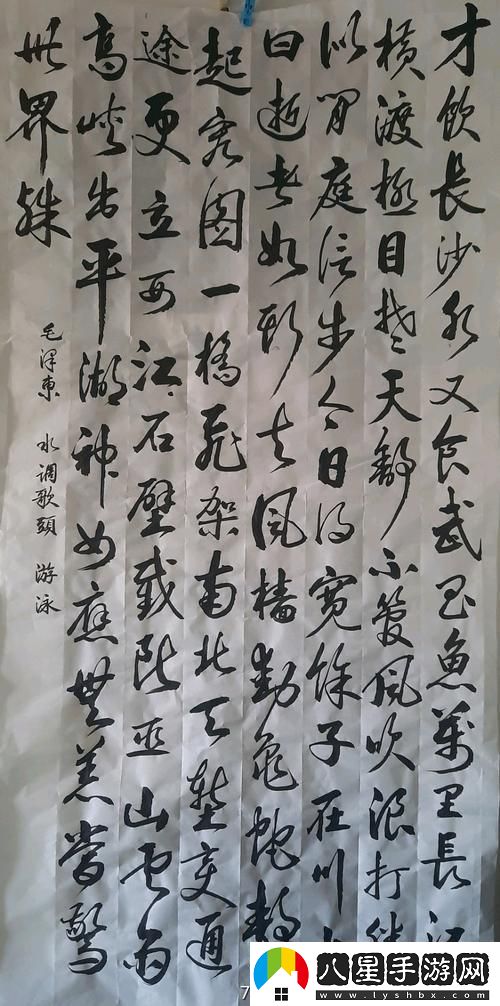 才飲長沙水又食武昌魚萬里長江
横渡極目楚天舒不管風吹浪打勝
似閒庭信步今日得寬餘子在川上
曰逝者如斯夫風檣動龜蛇静
起宏圖一橋飛架南北天塹变通
途更立西江石壁截断巫山雲雨
高峡出平湖神女應無恙當驚
世界殊
毛泽東 水调歌頭 游泳
7
八星手游网
www.lyshbx.com